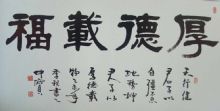 厚德載福
天行健
君子以
自強不息
地勢坤
君子以
厚德載
物